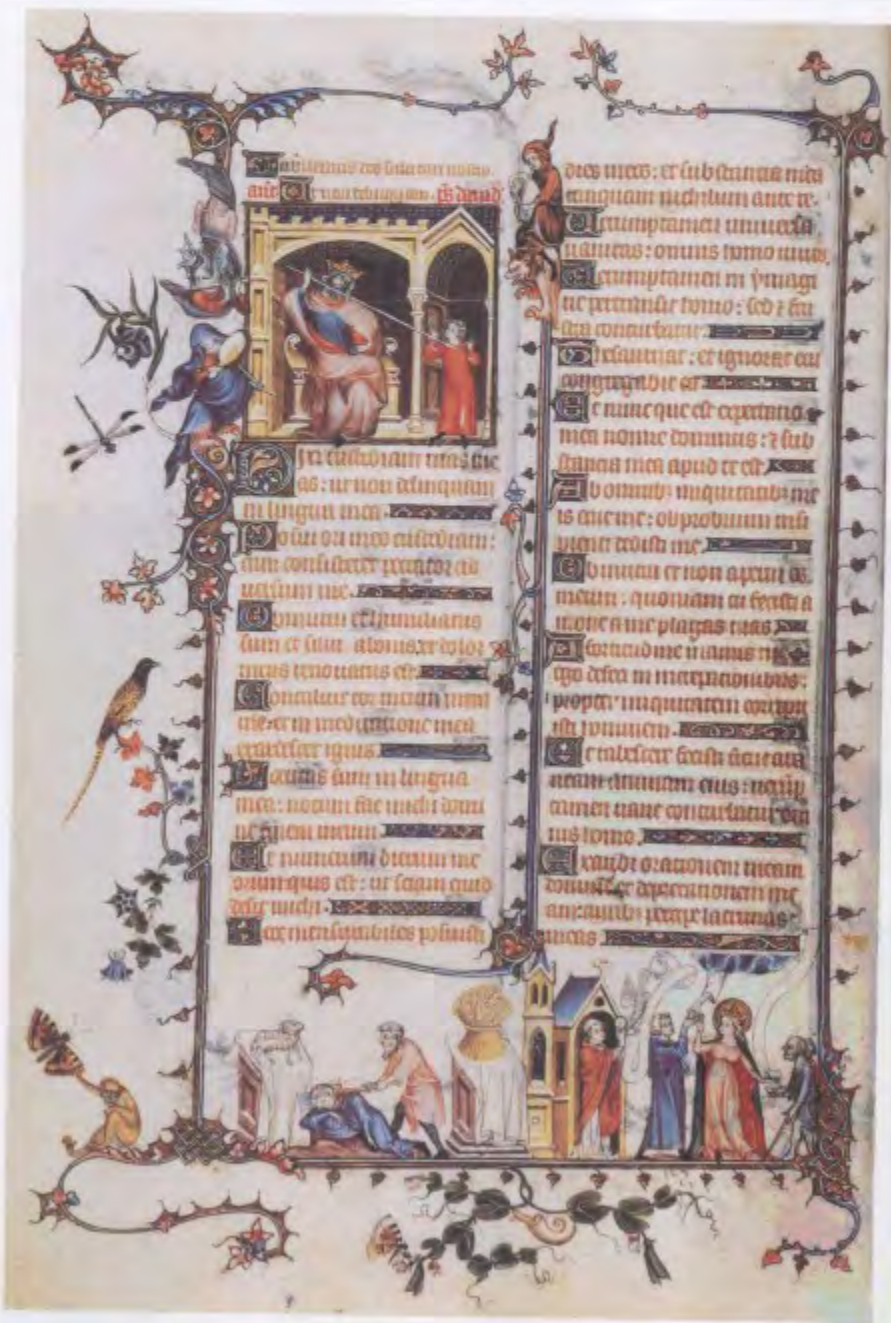 Ut non delinquam. p̄s dauid
Dixi custodiam uias me
as: ut non delinquam
in lingua mea
Posui ori meo custodiam:
cum consisteret peccator ad
uersum me.
Obmutui et humiliatus
sum et silui a bonis: et dolor
meus renouatus est.
Concaluit cor meum intra
me: et in meditatione mea
exardescet ignis.
Locutus sum in lingua
mea: notum fac michi domi
ne finem meum
Et numerum dierum me
orum quis est: ut sciam quid
desit michi.
Ecce mensurabiles posuisti
dies meos: et substancia mea
tanquam nichilum ante te.
Uerumptamen uniuersa
uanitas: omnis homo uiuens.
Uerumptamen in ymagi
ne pertransit homo: sed ⁊ frus
tra conturbatur.
Thesaurizat: et ignorat cui
congregabit ea
Et nunc que est expectatio
mea nonne dominus: ⁊ sub
stancia mea apud te est
Ab omnib; iniquitatib; me
is erue me: obprobrium insi
pienti dedisti me.
Obmutui et non aperui os
meum: quoniam tu fecisti a
moue a me plagas tuas
A fortitudine manus tue
ego defeci in increpacionibus:
propter iniquitatem corripu
isti hominem.
Et tabescere fecisti sicut ara
neam animam eius:
tamen uane conturbatur om
nis homo.
Exaudi orationem meam
domine et deprecationem me
am: auribus percipe lacrimas
meas